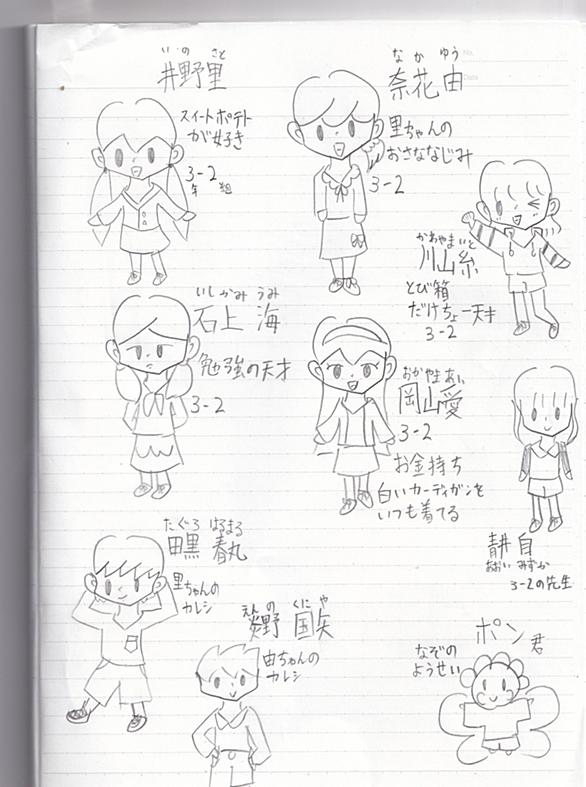 いの さと
井野里
スイートポテト
が好き
3-2
年 組
なか ゆう
奈花 由
里ちゃんの
おさななじみ
3-2
かわやま いと
川山 糸
とび箱
だけちょー天才
3-2
いしかみ うみ
石上 海
勉強の天才
3-2
おかやま あい
岡山愛
3-2
お金持ち
白いカーディガンを
いつも着てる
あおい みずか
3-2の先生
たぐろ はるまる
田黒 春丸
里ちゃんの
カレシ
えんの くにや
炎野 国矢
由ちゃんの
カレシ
ポン君
なぞの
ようせい